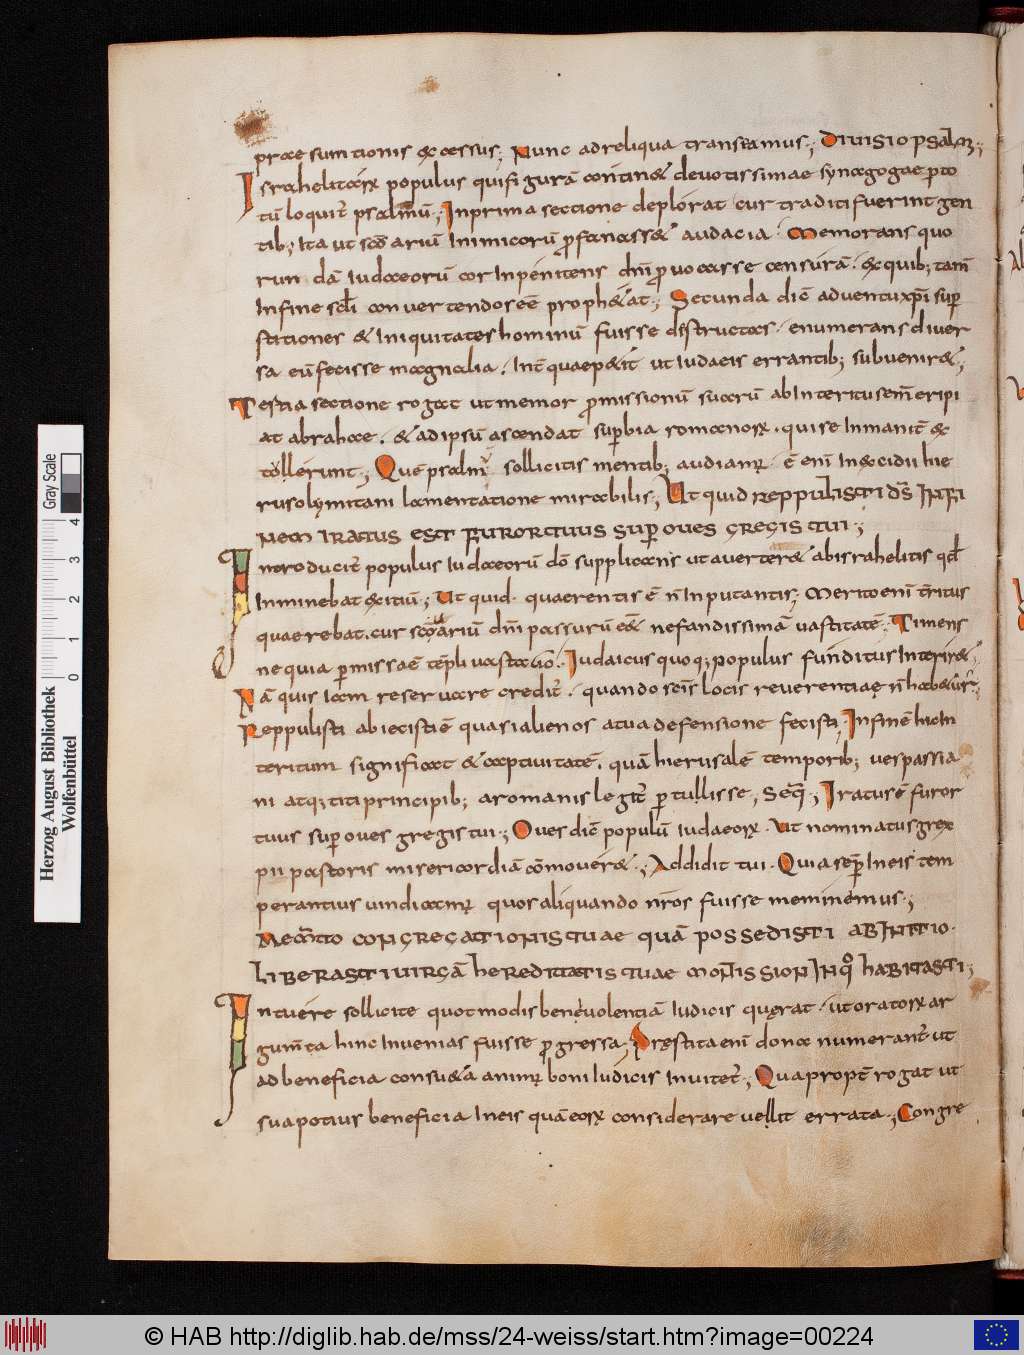 praesumtionis excessus; Nunc ad reliqua transeamus; Diuisio psalmi;
Israhelitarū populus qui figurā continet deuotissimae synagogae per to
tū loquit psalmū; In prima sectione deplorat cur traditi fuerint gen
tib; ita ut scōariū inimicorū profanasset audacia. Memorans quo
rundā iudaeorū cor inpenitens dn̄i prouocasse censurā. ex quib; tam̄
in fine scl̄i conuertendos eē prophetat; Secunda dic̄ aduentu xp̄i sup
stitiones & iniquitates hominū fuisse destructas. enumerans diuer
sa eū fecisse magnalia. int̄ quae petiit ut iudaeis errantib; subueniret;
Tertia sectione rogat ut memor promissionū suarū ab interitu sem̄ eripi
at abrahae. & ad ipsū ascendat supbia romanorū. qui se inmanit̄ ex
tollerunt; Quē psalmū sollicitis mentib; audiam; ē eni in excidii hie
rusolymitani lamentatione mirabilis; Ut quid reppulisti ds̄ in fi
nem iratus est furor tuus sup oues gregis tui;
Introducit populus iudaeorū dō supplicans ut auerteret ab israhelitis qd̄
inminebat exitiū; Ut quid. quaerentis ē n̄ inputantis; Merito eni territus
quaerebat. cur scōariū dn̄i passurū eēt nefandissimā uastitatē; Timens
ne quia permissa ē tēpli uastatio. Iudaicus quoq; populus funditus interiret;
Nā quis iam reseruare credit. quando scīs locis reuerentiae n̄ habetur;
Reppulisti abiecisti ē quasi alienos a tua defensione fecisti; In finē hic in
teritum significat & captiuitatē. quā hierusalē temporib; uespassia
ni atq; titi principib; a romanis legit pertullisse; Seq̄; Iratus ē furor
tuus sup oues gregis tui; Oues dic̄ populū iudaeorū. Ut nominatus grex
pii pastoris misericordiā cōmoueret; Addidit tui. Quia semp in eis tem
perantius uindicam quos aliquando nr̄os fuisse meminemus;
Memto congregationis tuae quā possedisti ab initio.
Liberasti uirgā hereditatis tuae mons sion in quo habitasti;
Intuere sollicite quot modis beneuolentiā iudicis querat. ut oratorū ar
gumta hinc inuenias fuisse progressa; Prestita eni dona numerant ut
ad beneficia consueta anim boni iudicis inuitet; Quapropt̄ rogat ut
sua potius beneficia in eis quā eorū considerare uellit errata; Congre
Herzog August Bibliothek
Wolfenbüttel
0 1 2 3 4
Gray Scale
© HAB http://diglib.hab.de/mss/24-weiss/start.htm?image=00224